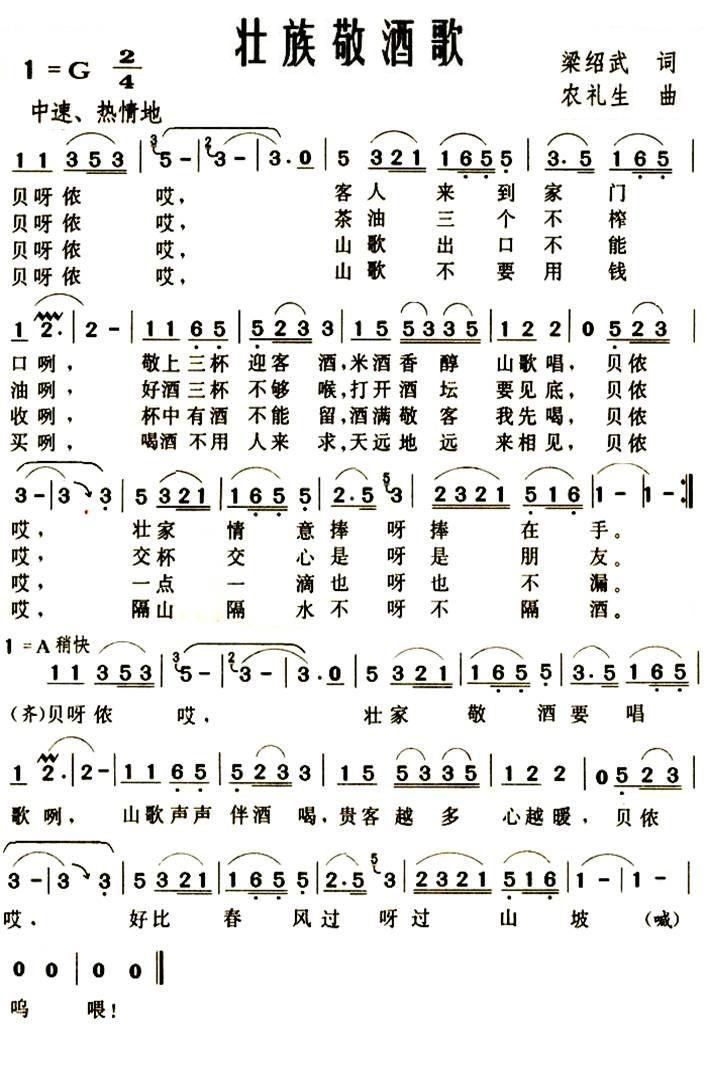 壮族敬酒歌
1=G 2/4
梁绍武 词
中速、热情地
农礼生 曲
1 1 3 5 3 | 3 5 - | 2 3 - | 3. 0 | 5 3 2 1 | 1 6 5 5 | 3. 5 | 1 6 5 |
贝呀侬 哎, 客人 来 到 家 门
贝呀侬 哎, 茶油 三 个 不 榨
贝呀侬 哎, 山歌 出 口 不 能
贝呀侬 哎, 山歌 不 要 用 钱
1 2. | 2 - | 1 1 6 5 | 5 2 3 3 | 1 5 5 3 3 5 | 1 2 2 | 0 5 2 3 |
口 咧, 敬上三杯 迎客 酒,米酒香醇 山歌唱, 贝侬
油 咧, 好酒三杯 不够 喉,打开酒坛 要见底, 贝侬
收 咧, 杯中有酒 不能 留,酒满敬客 我先喝, 贝侬
买 咧, 喝酒不用 人来 求,天远地远 来相见, 贝侬
3 - | 3 3 | 5 3 2 1 | 1 6 5 5 | 2. 5 5 3 | 2 3 2 1 | 5 1 6 | 1 - | 1 - :|
哎, 壮家 情 意捧 呀捧 在 手。
哎, 交杯 交 心是 呀是 朋 友。
哎, 一点 一 滴也 呀也 不 漏。
哎, 隔山 隔 水不 呀不 隔 酒。
1=A 稍快
1 1 3 5 3 | 3 5 - | 2 3 - | 3. 0 | 5 3 2 1 | 1 6 5 5 | 3. 5 | 1 6 5 |
(齐)贝呀侬 哎, 壮家 敬 酒要 唱
1 2. | 2 - | 1 1 6 5 | 5 2 3 3 | 1 5 5 3 3 5 | 1 2 2 | 0 5 2 3 |
歌 咧, 山歌声声 伴酒 喝,贵客越多 心越暖, 贝侬
3 - | 3 3 | 5 3 2 1 | 1 6 5 5 | 2. 5 5 3 | 2 3 2 1 | 5 1 6 | 1 - | 1 - |
哎. 好比 春 风过 呀过 山 坡 (喊)
0 0 | 0 0 ‖
呜 喂!